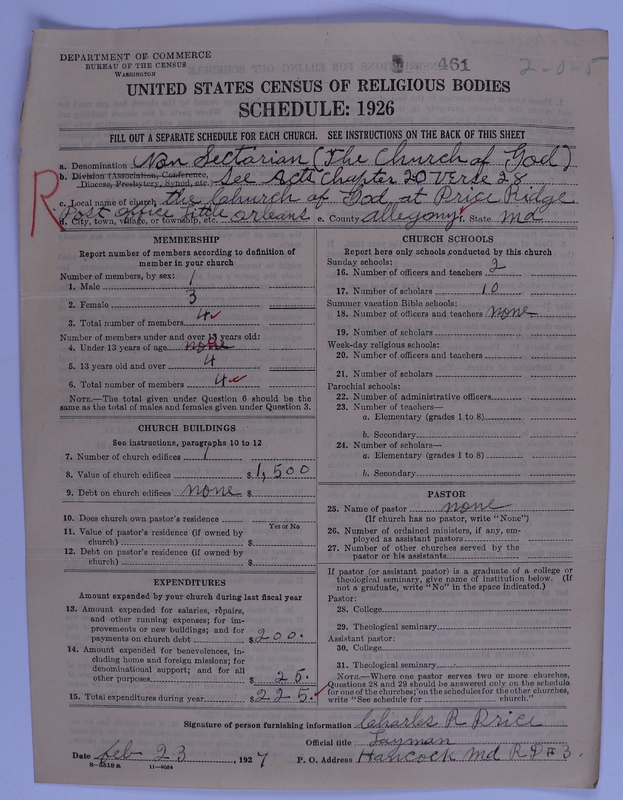 DEPARTMENT OF COMMERCE
BUREAU OF THE CENSUS
WASHINGTON
461
2-0-5
UNITED STATES CENSUS OF RELIGIOUS BODIES
SCHEDULE: 1926
FILL OUT A SEPARATE SCHEDULE FOR EACH CHURCH. SEE INSTRUCTIONS ON THE BACK OF THIS SHEET
R
a. Denomination Non Sectarian (The Church of God)
b. Division (Association, Conference,
Diocese, Presbytery, Synod, etc. See Acts Chapter 20 Verse 28
c. Local name of church the Church of God at Price Ridge
d. City, town, village, or township, etc. Post Office Little Orleans e. County Allegany f. State Md
MEMBERSHIP
Report number of members according to definition of
member in your church
Number of members, by sex:
1. Male 1
2. Female 3
3. Total number of members 4
Number of members under and over 13 years old:
4. Under 13 years of age none
5. 13 years old and over 4
6. Total number of members 4
NOTE.—The total given under Question 6 should be the
same as the total of males and females given under Question 3.
CHURCH BUILDINGS
See instructions, paragraphs 10 to 12
7. Number of church edifices 1
8. Value of church edifices $1,500
9. Debt on church edifices none $
10. Does church own pastor's residence
Yes or No
11. Value of pastor's residence (if owned by
church) $
12. Debt on pastor's residence (if owned by
church) $
EXPENDITURES
Amount expended by your church during last fiscal year
13. Amount expended for salaries, repairs,
and other running expenses; for im-
provements or new buildings; and for
payments on church debt $200.
14. Amount expended for benevolences, in-
cluding home and foreign missions; for
denominational support; and for all
other purposes $25.
15. Total expenditures during year $225.
CHURCH SCHOOLS
Report here only schools conducted by this church
Sunday schools:
16. Number of officers and teachers 2
17. Number of scholars 10
Summer vacation Bible schools:
18. Number of officers and teachers none
19. Number of scholars
Week-day religious schools:
20. Number of officers and teachers
21. Number of scholars
Parochial schools:
22. Number of administrative officers
23. Number of teachers—
a. Elementary (grades 1 to 8)
b. Secondary
24. Number of scholars—
a. Elementary (grades 1 to 8)
b. Secondary
PASTOR
25. Name of pastor none
(If church has no pastor, write "None")
26. Number of ordained ministers, if any, em-
ployed as assistant pastors
27. Number of other churches served by the
pastor or his assistants
If pastor (or assistant pastor) is a graduate of a college or
theological seminary, give name of institution below. (If
not a graduate, write "No" in the space indicated.)
Pastor:
28. College
29. Theological seminary
Assistant pastor:
30. College
31. Theological seminary
NOTE.—Where one pastor serves two or more churches,
Questions 28 and 29 should be answered only on the schedule
for one of the churches; on the schedules for the other churches,
write "See schedule for church."
Signature of person furnishing information Charles R Price
Official title Layman
Date Feb 23, 1927 P. O. Address Hancock Md R F # 3
8-5518a 11-9054